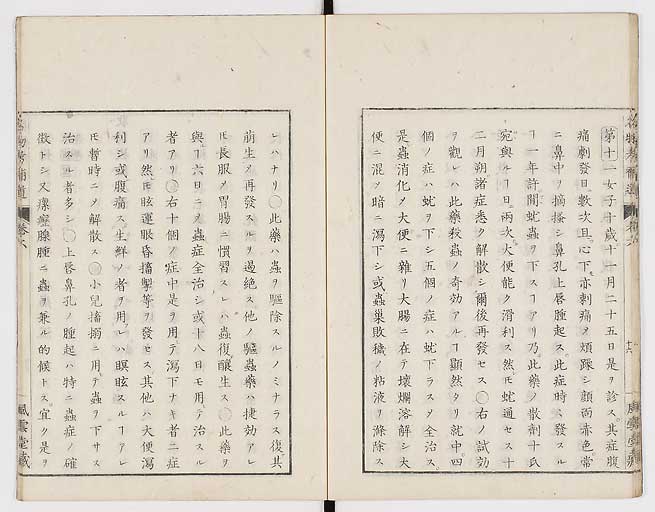 第十一女子十歳十一月二十五日是ヲ診ス其症腹
痛劇發日數次且心下亦刺痛〆煩躁シ顔面赤色常
ニ鼻中ヲ摘搔シ鼻孔上唇腫起ス此症時々發スル
ヿ一年許間蚘蟲ヲ下スヿアリ乃此藥ノ散劑十氏
宛與ルヿ日兩次大便能ク滑利ス然𪜈蚘通セス十
二月朔諸症悉ク解散シ爾後再發セス○右ノ試効
ヲ觀レハ此藥殺蟲ノ奇効アルヿ顯然タリ就中四
個ノ症ハ蚘ヲ下シ五個ノ症ハ蚘下ラス〆全治ス
是蟲消化〆大便ニ雜リ大腸ニ在テ壞爛溶解シ大
便ニ混〆暗ニ瀉下シ或蟲巢敗穢ノ粘液ヲ滌除ス
レハナリ○此藥ハ蟲ヲ驅除スルノミナラス復其
萌生〆再發スルヲ遏絶ス他ノ驅蟲藥ハ捷効アレ
𪜈長服〆胃腸ニ慣習スレハ蟲復釀生ス○此藥ヲ
與ヿ六日ニ〆蟲症全治シ或十八日𪜈用テ治スル
者アリ○右十個ノ症中是ヲ用テ瀉下ナキ者二症
アリ然𪜈眩運眼昏搐搦等ヲ發セス其他ハ大便瀉
利シ或腹痛ス生鮮ノ者ヲ用レハ瞑眩スルヿアレ
𪜈暫時ニ〆解散ス○小兒搐搦ニ用テ蟲ヲ下サス
治スル者多シ○上唇鼻孔ノ腫起ハ特ニ蟲症ノ確
徴トシ又瘰癧腺腫ニ蟲ヲ兼ルノ的候トス宜ク是ヲ
卷六
風雲堂藏